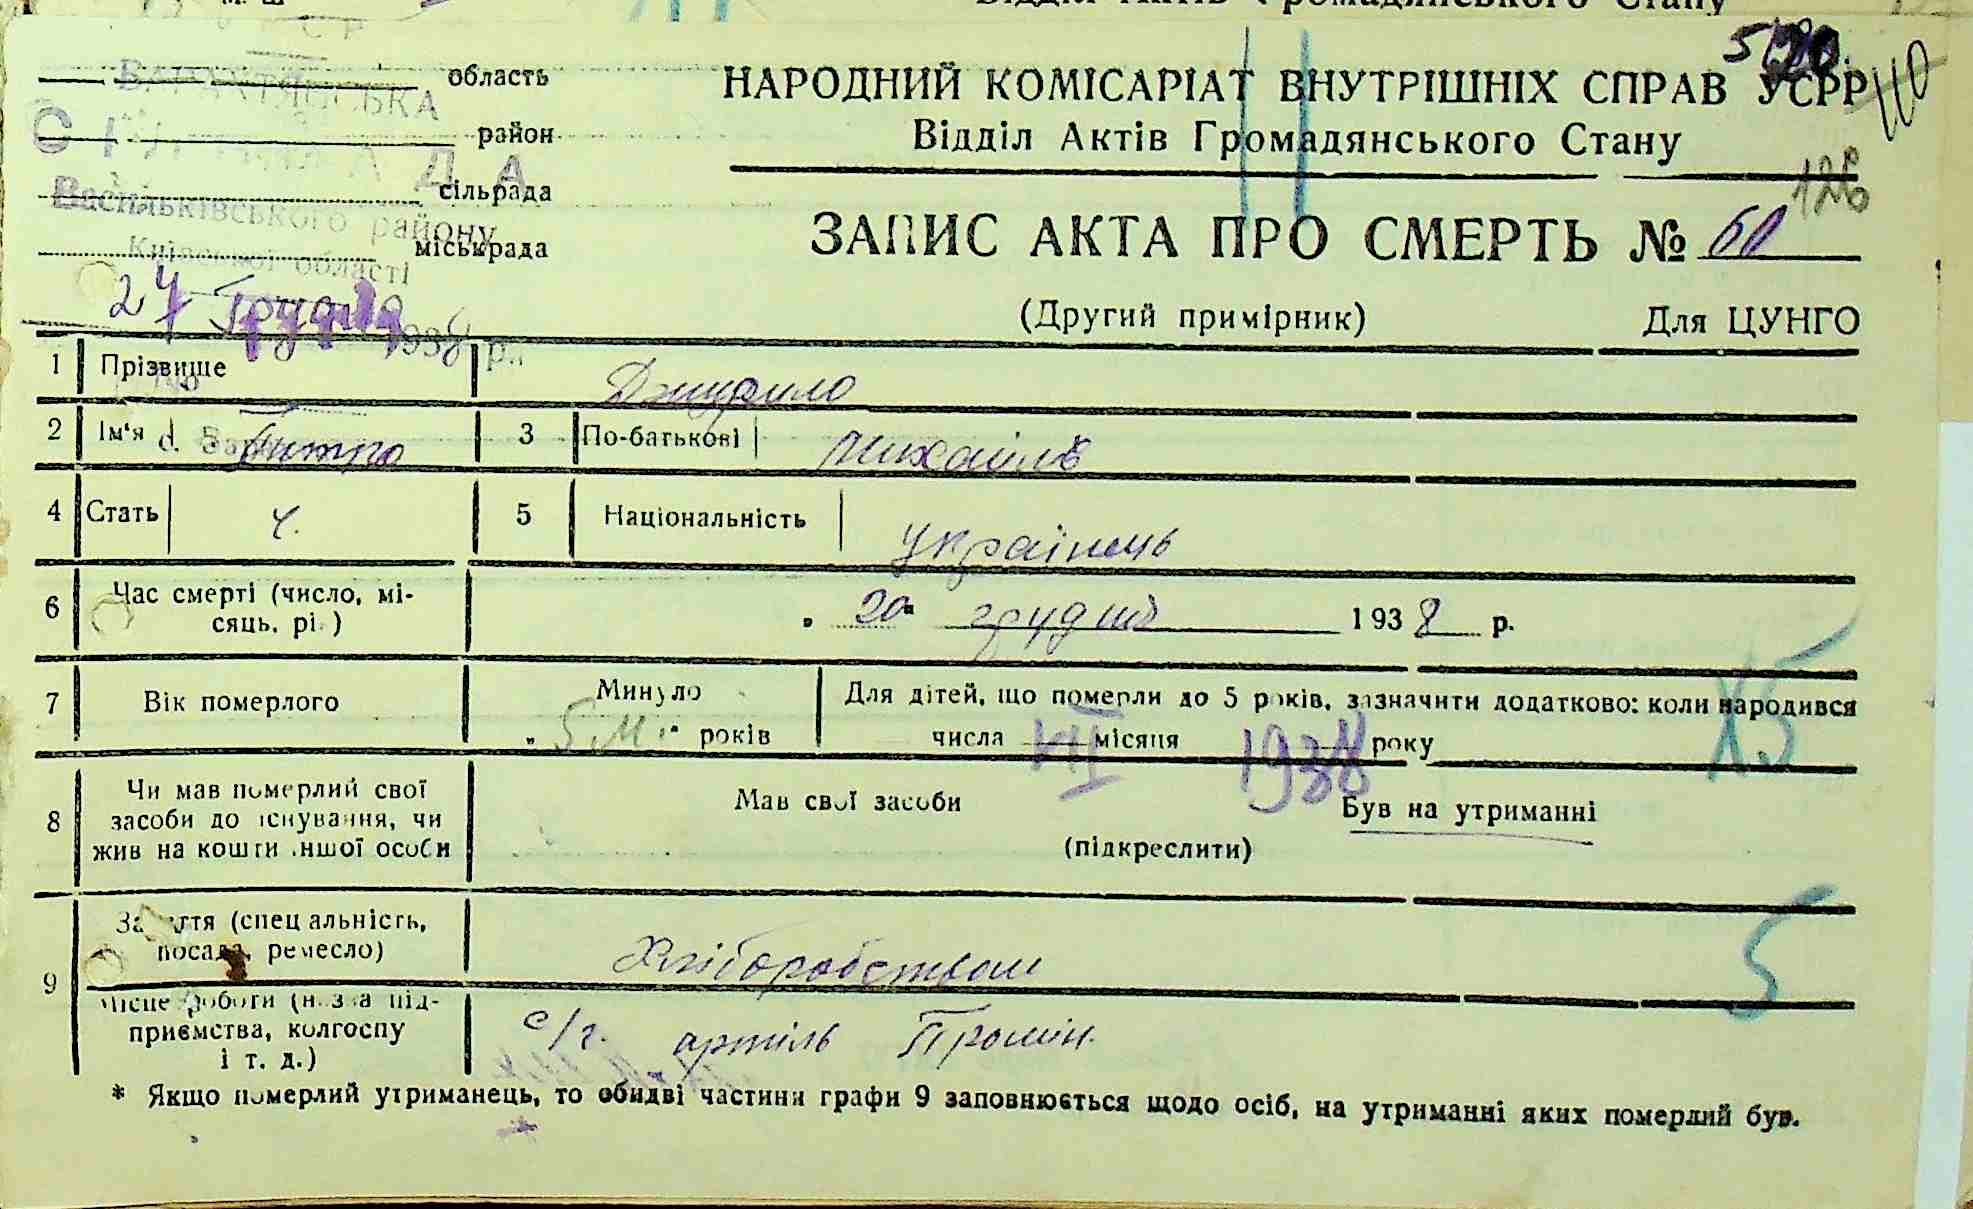 Відділ Актів Громадянського Стану
5
110
НАРОДНИЙ КОМІСАРІАТ ВНУТРІШНІХ СПРАВ УСРР
Відділ Актів Громадянського Стану
область
район
сільрада
міськрада
Васильківського району
Київської області
126
ЗАПИС АКТА ПРО СМЕРТЬ № 60
(Другий примірник) Для ЦУНГО
27 Грудня 1938 р.
1 Прізвище
2 Ім'я 3 По-батькові Михайлів
4 Стать ч. 5 Національність українець
6 Час смерті (число, мі-
сяць, рі ) „ 20 " грудня 1938 р.
7 Вік померлого Минуло Для дітей, що померли до 5 років, зазначити додатково: коли народився
„ 5 м " років числа VII місяця 1938 року
X5
8 Чи мав померлий свої
засоби до існування, чи
жив на кошти іншої особи
Мав свої засоби Був на утриманні
(підкреслити)
9 Заняття (спеціальність,
посада, ремесло) Хліборобством
5
Місце роботи (назва під-
приємства, колгоспу
і т. д.) с/г. артіль Промін.
* Якщо померлий утриманець, то обидві частини графи 9 заповнюється щодо осіб, на утриманні яких померлий був.